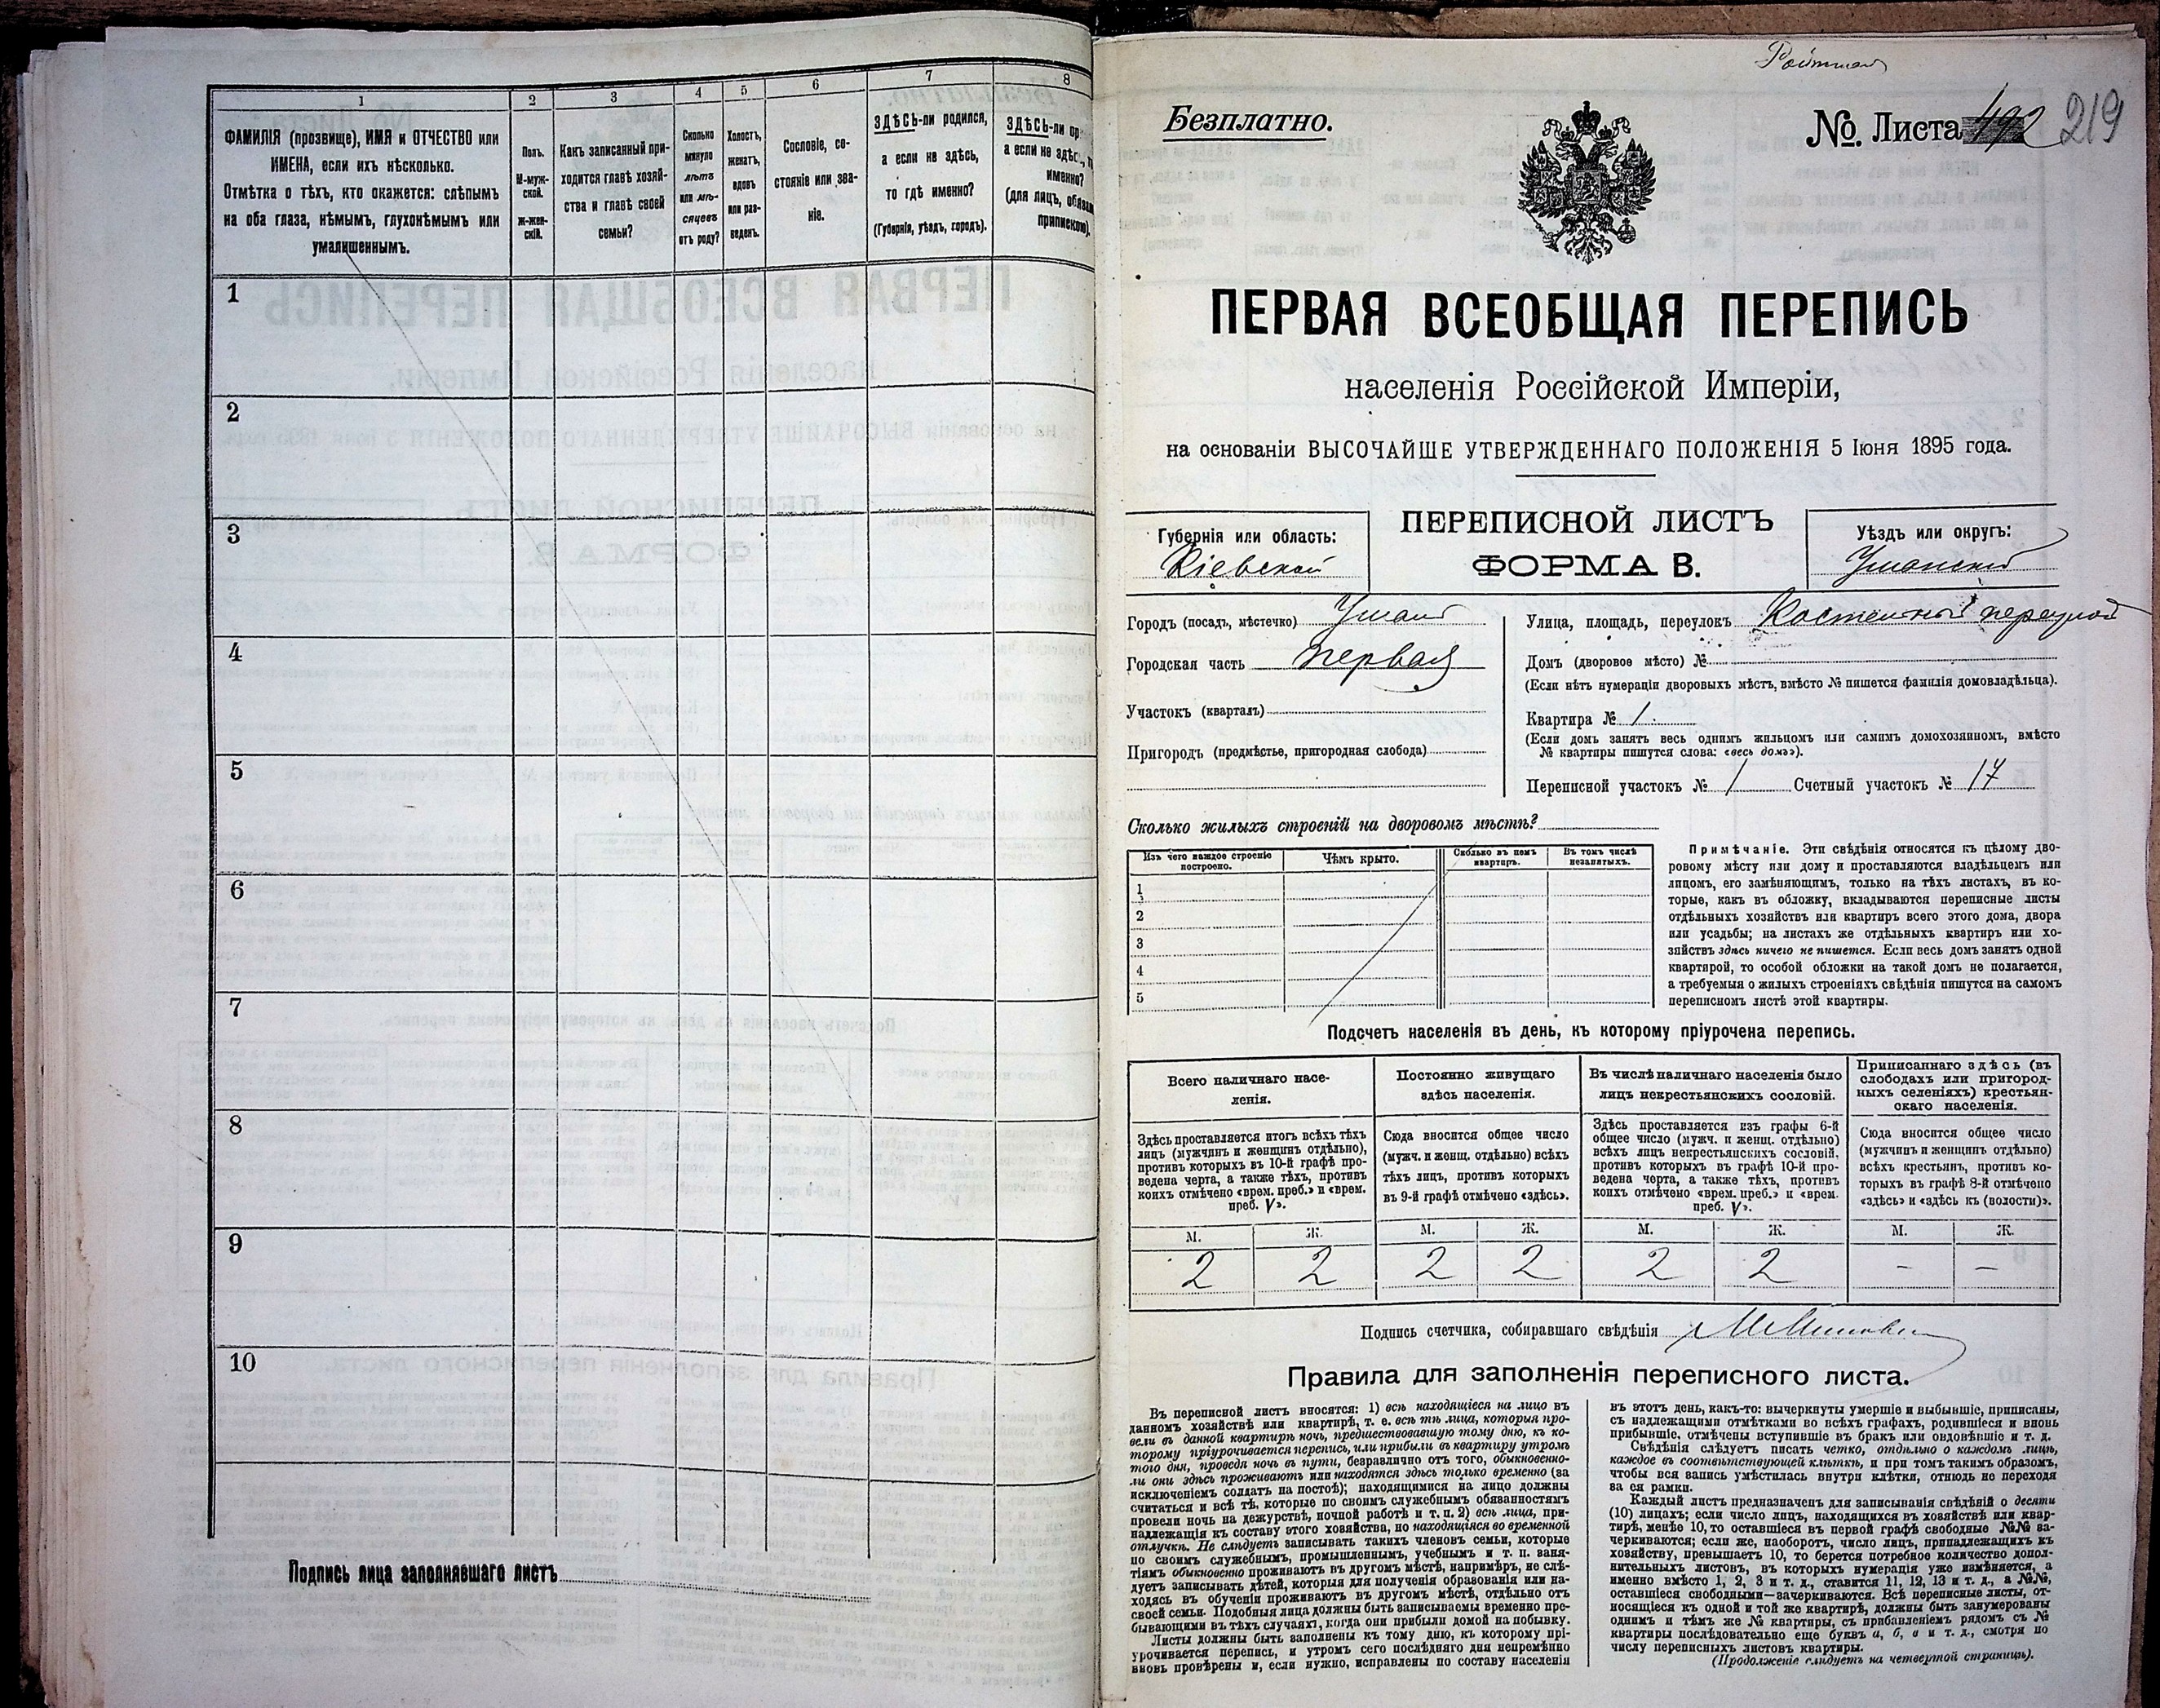 1 2 3 4 5 6 7 8
ФАМИЛІЯ (прозвище), ИМЯ и ОТЧЕСТВО или
ИМЕНА, если ихъ нѣсколько.
Отмѣтка о тѣхъ, кто окажется: слѣпымъ
на оба глаза, нѣмымъ, глухонѣмымъ или
умалишеннымъ.
Полъ.
М-муж-
ской.
Ж-жен-
скій.
Какъ записанный при-
ходится главѣ хозяй-
ства и главѣ своей
семьи?
Сколько
минуло
лѣтъ
или мѣ-
сяцевъ
отъ роду?
Холостъ,
женатъ,
вдовъ
или раз-
веденъ.
Сословіе, со-
стояніе или зва-
ніе.
ЗДѢСЬ-ли родился,
а если не здѣсь,
то гдѣ именно?
(Губернія, уѣздъ, городъ).
ЗДѢСЬ-ли
а если не здѣсь,
именно?
(для лицъ,
припискою).
1
2
3
4
5
6
7
8
9
10
Подпись лица заполнявшаго листъ
Безплатно.
№ Листа 492 219
ПЕРВАЯ ВСЕОБЩАЯ ПЕРЕПИСЬ
населенія Россійской Имперіи,
на основаніи ВЫСОЧАЙШЕ УТВЕРЖДЕННАГО ПОЛОЖЕНІЯ 5 Іюня 1895 года.
Губернія или область:
Кіевской
ПЕРЕПИСНОЙ ЛИСТЪ
ФОРМА В.
Уѣздъ или округъ:
Уманскій
Городъ (посадъ, мѣстечко) Умань
Городская часть первая
Участокъ (кварталъ)
Пригородъ (предмѣстье, пригородная слобода)
Улица, площадь, переулокъ Костельный переулок
Домъ (дворовое мѣсто) №
(Если нѣтъ нумераціи дворовыхъ мѣстъ, вмѣсто № пишется фамилія домовладѣльца).
Квартира № 1.
(Если домъ занятъ весь однимъ жильцомъ или самимъ домохозяиномъ, вмѣсто
№ квартиры пишутся слова: «весь домъ»).
Переписной участокъ № 1 Счетный участокъ № 17
Сколько жилыхъ строеній на дворовомъ мѣстѣ?
Изъ чего каждое строеніе
построено.
Чѣмъ крыто.
Сколько въ немъ
квартиръ.
Въ томъ числѣ
незанятыхъ.
1
2
3
4
5
Примѣчаніе. Эти свѣдѣнія относятся къ цѣлому дво-
ровому мѣсту или дому и проставляются владѣльцемъ или
лицомъ, его замѣняющимъ, только на тѣхъ листахъ, въ ко-
торые, какъ въ обложку, вкладываются переписные листы
отдѣльныхъ хозяйствъ или квартиръ всего этого дома, двора
или усадьбы; на листахъ же отдѣльныхъ квартиръ или хо-
зяйствъ здѣсь ничего не пишется. Если весь домъ занятъ одной
квартирой, то особой обложки на такой домъ не полагается,
а требуемыя о жилыхъ строеніяхъ свѣдѣнія пишутся на самомъ
переписномъ листѣ этой квартиры.
Подсчетъ населенія въ день, къ которому пріурочена перепись.
Всего наличнаго насе-
ленія.
Постоянно живущаго
здѣсь населенія.
Въ числѣ наличнаго населенія было
лицъ некрестьянскихъ сословій.
Приписаннаго здѣсь (въ
слободахъ или пригород-
ныхъ селеніяхъ) крестьян-
скаго населенія.
Здѣсь проставляется итогъ всѣхъ тѣхъ
лицъ (мужчинъ и женщинъ отдѣльно),
противъ которыхъ въ 10-й графѣ про-
ведена черта, а также тѣхъ, противъ
коихъ отмѣчено «врем. преб.» и «врем.
преб. V».
Сюда вносится общее число
(мужч. и женщ. отдѣльно) всѣхъ
тѣхъ лицъ, противъ которыхъ
въ 9-й графѣ отмѣчено «здѣсь».
Здѣсь проставляется изъ графы 6-й
общее число (мужч. и женщ. отдѣльно)
всѣхъ лицъ некрестьянскихъ сословій,
противъ которыхъ въ графѣ 10-й про-
ведена черта, а также тѣхъ, противъ
коихъ отмѣчено «врем. преб.» и «врем.
преб. V».
Сюда вносится общее число
(мужчинъ и женщинъ отдѣльно)
всѣхъ крестьянъ, противъ ко-
торыхъ въ графѣ 8-й отмѣчено
«здѣсь» и «здѣсь къ (волости)».
М. Ж. М. Ж. М. Ж. М. Ж.
2 2 2 2 2 2 - -
Подпись счетчика, собиравшаго свѣдѣнія
Правила для заполненія переписного листа.
Въ переписной листъ вносятся: 1) всѣ находящіеся на лицо въ
данномъ хозяйствѣ или квартирѣ, т. е. всѣ тѣ лица, которыя про-
вели въ данной квартирѣ ночь, предшествовавшую тому дню, къ ко-
торому пріурочивается перепись, или прибыли въ квартиру утромъ
того дня, проведя ночь въ пути, безразлично отъ того, обыкновенно-
ли они здѣсь проживаютъ или находятся здѣсь только временно (за
исключеніемъ солдатъ на постоѣ); находящимися на лицо должны
считаться и всѣ тѣ, которые по своимъ служебнымъ обязанностямъ
провели ночь на дежурствѣ, ночной работѣ и т. п. 2) всѣ лица, при-
надлежащія къ составу этого хозяйства, но находящіяся во временной
отлучкѣ. Не слѣдуетъ записывать такихъ членовъ семьи, которые
по своимъ служебнымъ, промышленнымъ, учебнымъ и т. п. заня-
тіямъ обыкновенно проживаютъ въ другомъ мѣстѣ, напримѣръ, не слѣ-
дуетъ записывать дѣтей, которыя для полученія образованія или на-
ходясь въ обученіи проживаютъ въ другомъ мѣстѣ, отдѣльно отъ
своей семьи. Подобныя лица должны быть записываемы временно пре-
бывающими въ тѣхъ случаяхъ, когда они прибыли домой на побывку.
Листы должны быть заполнены къ тому дню, къ которому прі-
урочивается перепись, и утромъ сего послѣдняго дня непремѣнно
вновь провѣрены и, если нужно, исправлены по составу населенія
въ этотъ день, какъ-то: вычеркнуты умершіе и выбывшіе, приписаны,
съ надлежащими отмѣтками во всѣхъ графахъ, родившіеся и вновь
прибывшіе, отмѣчены вступившіе въ бракъ или овдовѣвшіе и т. д.
Свѣдѣнія слѣдуетъ писать четко, отдѣльно о каждомъ лицѣ,
каждое въ соотвѣтствующей клѣткѣ, и при томъ такимъ образомъ,
чтобы вся запись умѣстилась внутри клѣтки, отнюдь не переходя
за ея рамки.
Каждый листъ предназначенъ для записыванія свѣдѣній о десяти
(10) лицахъ; если число лицъ, находящихся въ хозяйствѣ или квар-
тирѣ, менѣе 10, то оставшіеся въ первой графѣ свободные №№ за-
черкиваются; если же, наоборотъ, число лицъ, принадлежащихъ къ
хозяйству, превышаетъ 10, то берется потребное количество допол-
нительныхъ листовъ, въ которыхъ нумерація уже измѣняется, а
именно вмѣсто 1, 2, 3 и т. д., ставится 11, 12, 13 и т. д., а №№,
оставшіеся свободными—зачеркиваются. Всѣ переписные листы, от-
носящіеся къ одной и той же квартирѣ, должны быть занумерованы
однимъ и тѣмъ же № квартиры, съ прибавленіемъ рядомъ съ №
квартиры послѣдовательно еще буквъ а, б, в и т. д., смотря по
числу переписныхъ листовъ квартиры.
(Продолженіе слѣдуетъ на четвертой страницѣ).